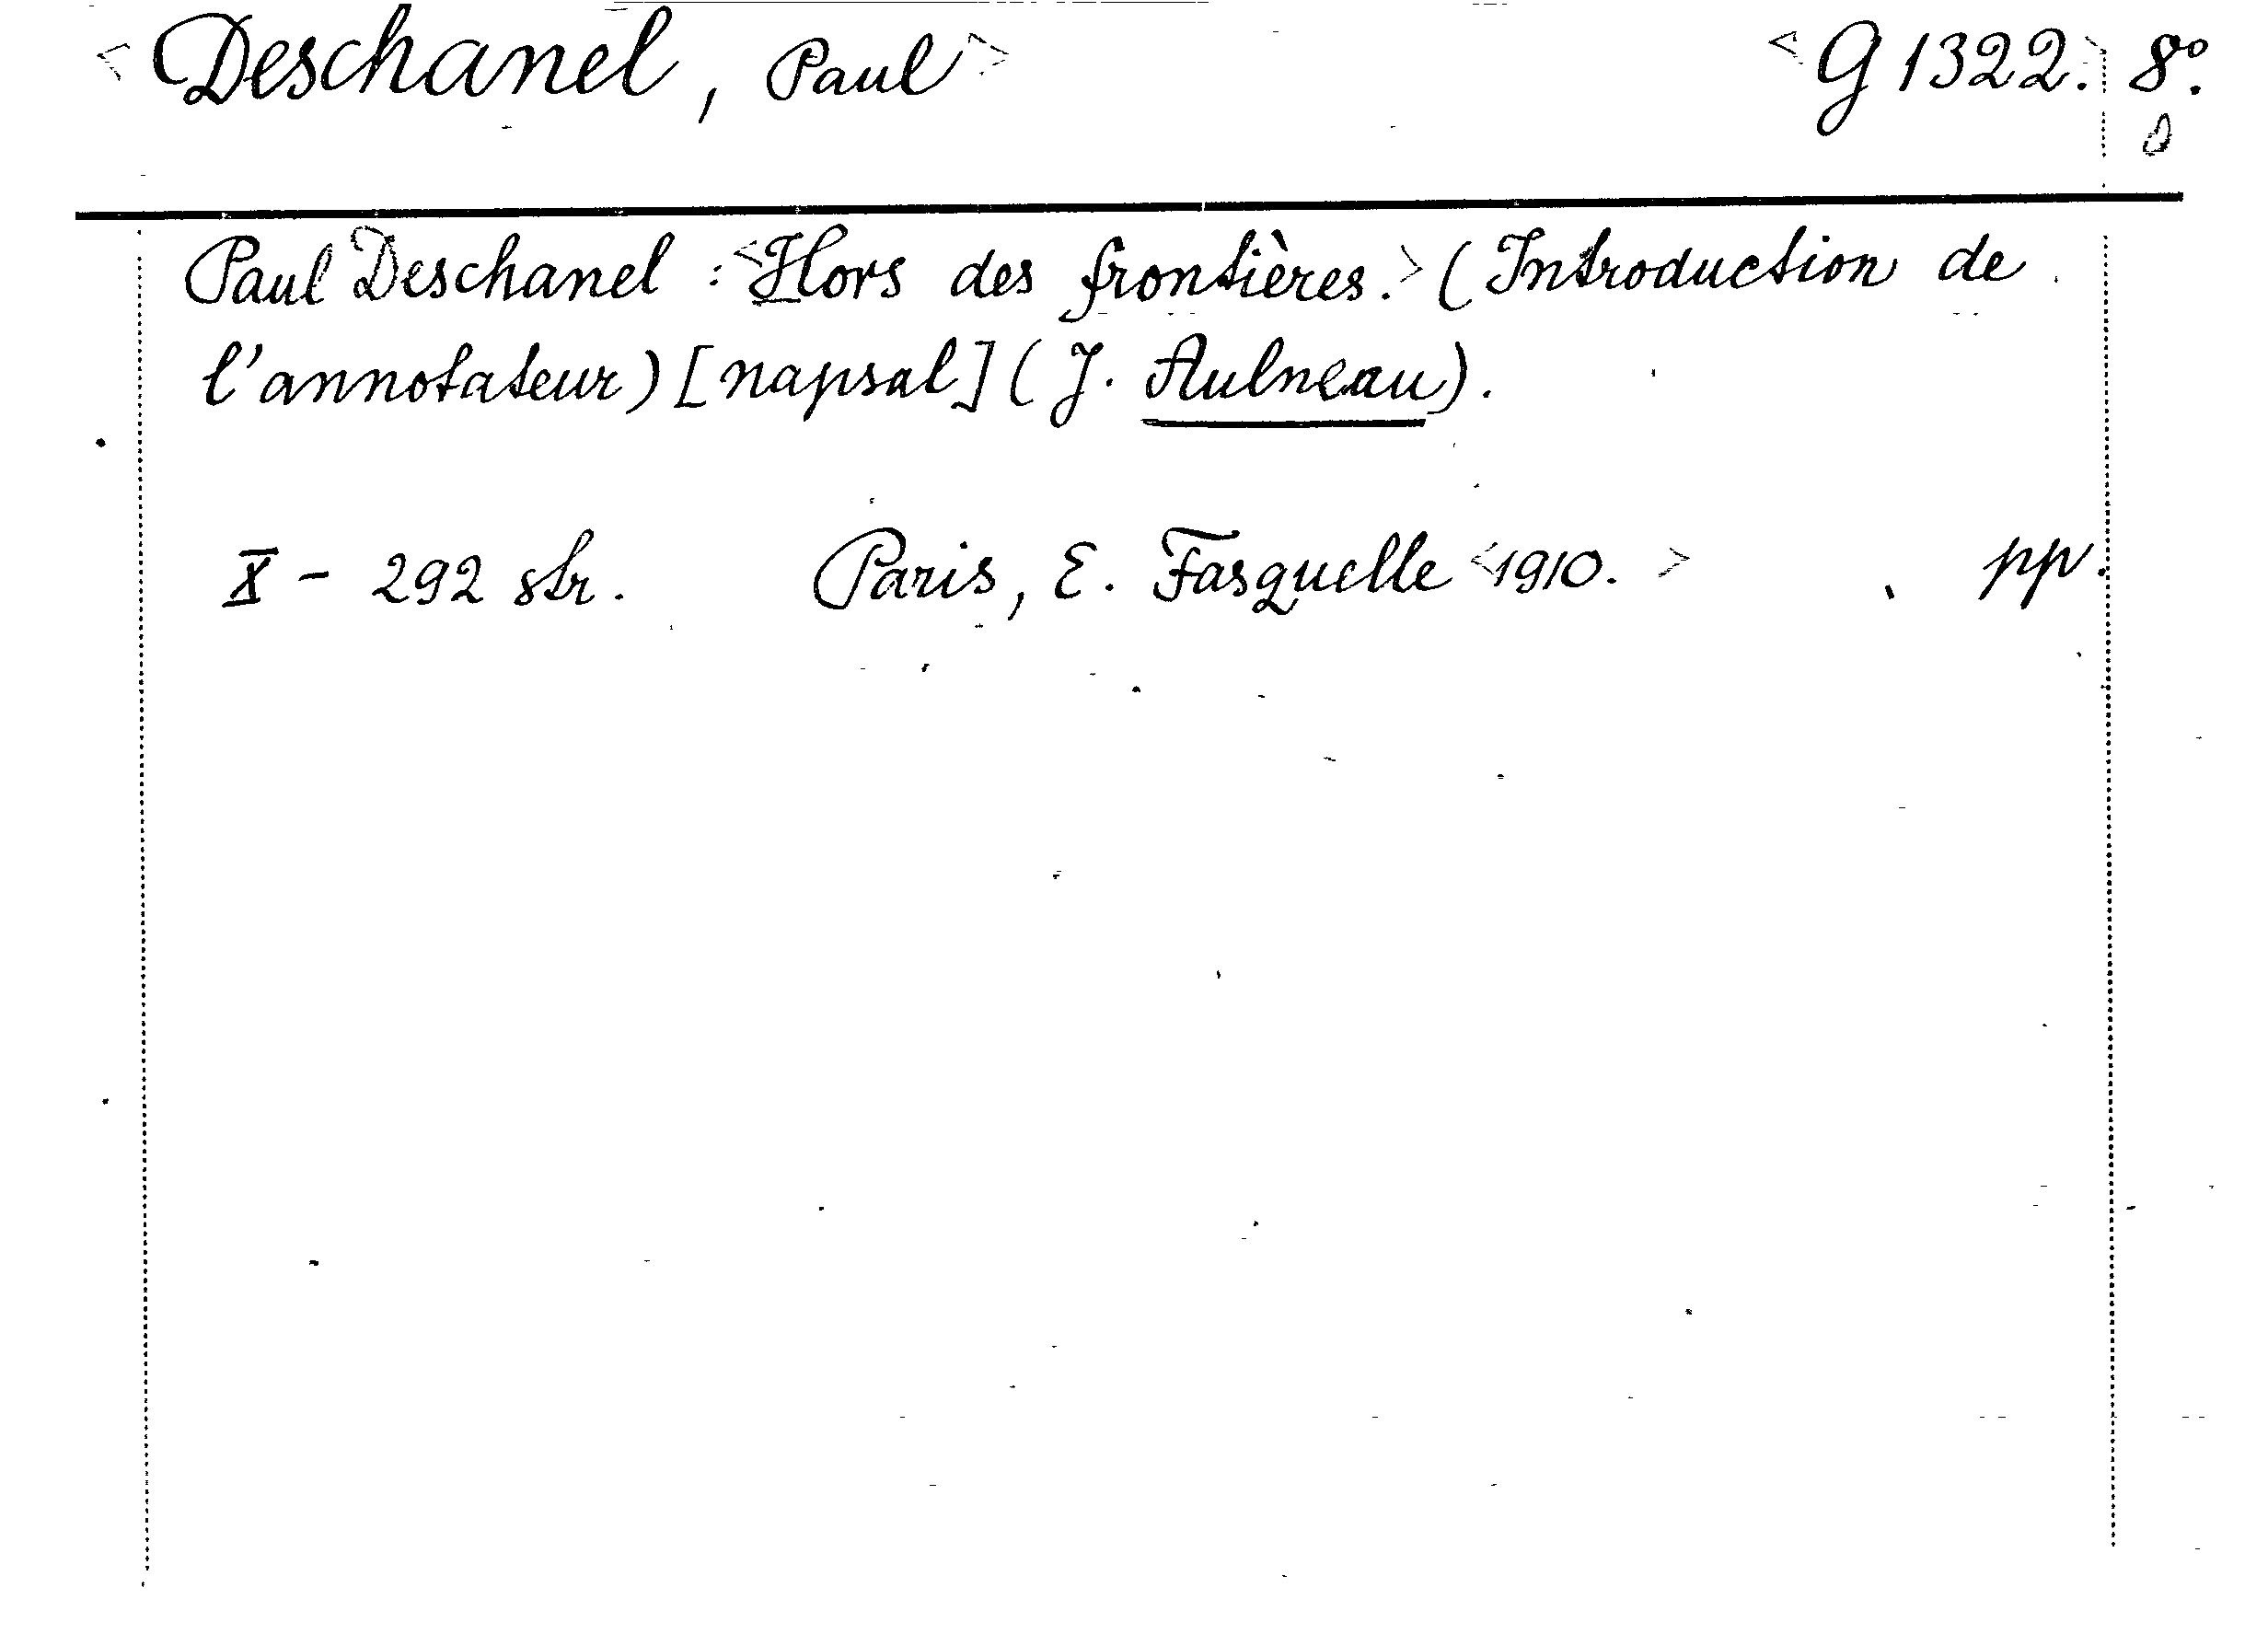 <Deschanel, Paul> <G 1322.> 8°.
Paul Deschanel: <Hors des frontières.> (Introduction de
l'annotateur) [napsal] (J. Aulneau).
X - 292 str. Paris, E. Fasquelle <1910.> pp.